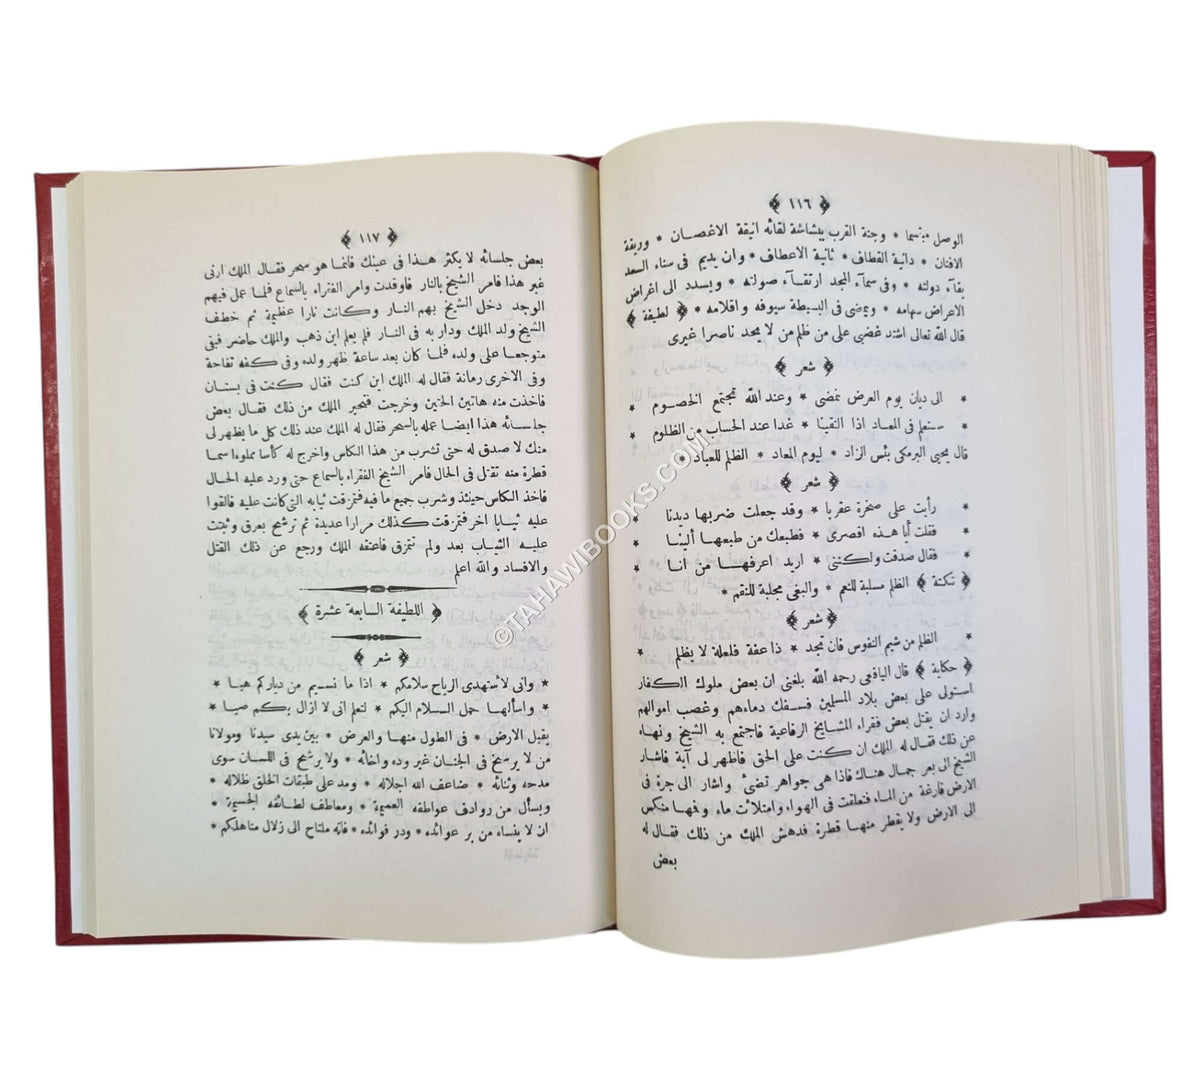 ﴿ ١١٦ ﴾
الوصل مبتسما * وجنة القرب ببشاشة لقائه انيقة الاغصان * وريقة
الافنان * دانية القطاف * ثانية الاعطاف * وان يديم فى سناء السعد
بقاء دولته * وفى سماء المجد ارتقاء صولته * ويسدد الى اغراض
الاعراض سهامه * ويمضى فى البسيطة سيوفه واقلامه * ﴿ لطيفة ﴾
قال الله تعالى اشتد غضبى على من ظلم من لا يجد ناصرا غيرى
﴿ شعر ﴾
* الى ديان يوم العرض نمضى * وعند الله تجتمع الخصوم *
* ستعلم فى المعاد اذا التقينا * غدا عند الحساب من الظلوم *
قال يحيى البرمكى بئس الزاد * ليوم المعاد * الظلم للعباد *
﴿ شعر ﴾
* رأيت على صخرة عقربا * وقد جعلت ضربها ديدنا *
* فقلت أيا هذه اقصرى * فطبعك من طبعها ألينا *
* فقال صدقت ولكننى * اريد اعرفها من انا *
﴿ نكتة ﴾ الظلم مسلبة للنعم * والبغى مجلبة للنقم *
﴿ شعر ﴾
* الظلم من شيم النفوس فان تجد * ذا عفة فلعلة لا يظلم *
﴿ حكاية ﴾ قال اليافعى رحمه الله بلغنى ان بعض ملوك الكفار
استولى على بعض بلاد المسلمين فسفك دماءهم وغصب اموالهم
واراد ان يقتل بعض فقراء المشايخ الرفاعية فاجتمع به الشيخ ونهاه
عن ذلك فقال له الملك ان كنت على الحق فاظهر لى آية فاشار
الشيخ الى بعر جمال هناك فاذا هى جواهر تضئ واشار الى جرة فى
الارض فارغة من الماء فتعلقت فى الهواء وامتلات ماء وفمها منكس
الى الارض ولا يقطر منها قطرة فدهش الملك من ذلك فقال له
بعض
﴿ ١١٧ ﴾
بعض جلسائه لا يكثر هذا فى عينك فانما هو سحر فقال الملك ارنى
غير هذا فامر الشيخ بالنار فاوقدت وامر الفقراء بالسماع فلما عمل فيهم
الوجد دخل الشيخ بهم النار وكانت نارا عظيمة ثم خطف
الشيخ ولد الملك ودار به فى النار فلم يعلم اين ذهب والملك حاضر فبقى
متوجعا على ولده فلما كان بعد ساعة ظهر ولده وفى كفه تفاحة
وفى الاخرى رمانة فقال له الملك اين كنت فقال كنت فى بستان
فاخذت منه هاتين الحبتين وخرجت فتحير الملك من ذلك فقال بعض
جلسائه هذا ايضا عمله بالسحر فقال له الملك عند ذلك كل ما يظهر لى
منك لا صدق له حتى تشرب من هذا الكاس واخرج له كأسا مملوءا سما
قطرة منه تقتل فى الحال فامر الشيخ الفقراء بالسماع حتى ورد عليه الحال
فاخذ الكاس حينئذ وشرب جميع ما فيه فتمزقت ثيابه التى كانت عليه فالقوا
عليه ثيابا اخر فتمزقت كذلك مرارا عديدة ثم ترشح بعرق وثبتت
عليه الثياب بعد ولم تتمزق فاعتقه الملك ورجع عن ذلك القتل
والافساد والله اعلم
﴿ اللطيفة السابعة عشرة ﴾
﴿ شعر ﴾
* وانى لاستهدى الرياح سلامكم * اذا ما نسيم من دياركم هبا *
* واسألها حمل السلام اليكم * لتعلم انى لا ازال بكم صبا *
يقبل الارض * فى الطول منها والعرض * بين يدى سيدنا ومولانا
من لا يرسخ فى الجنان غير وده واخائه * ولا يرشح فى اللسان سوى
مدحه وثنائه * ضاعف الله اجلاله * ومد على طبقات الخلق ظلاله *
ويسأل من روادف عواطفه العميمة * ومعاطف لطائفه الجسيمة *
ان لا ينساه من بر عوائده * ودر فوائده * فانه ملتاح الى زلال مناهلكم *
©TAHAWIBOOKS.COM